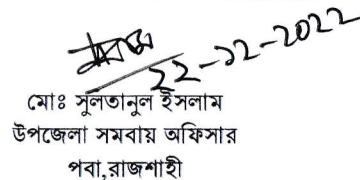 22-12-2022
মোঃ সুলতানুল ইসলাম
উপজেলা সমবায় অফিসার
পবা,রাজশাহী